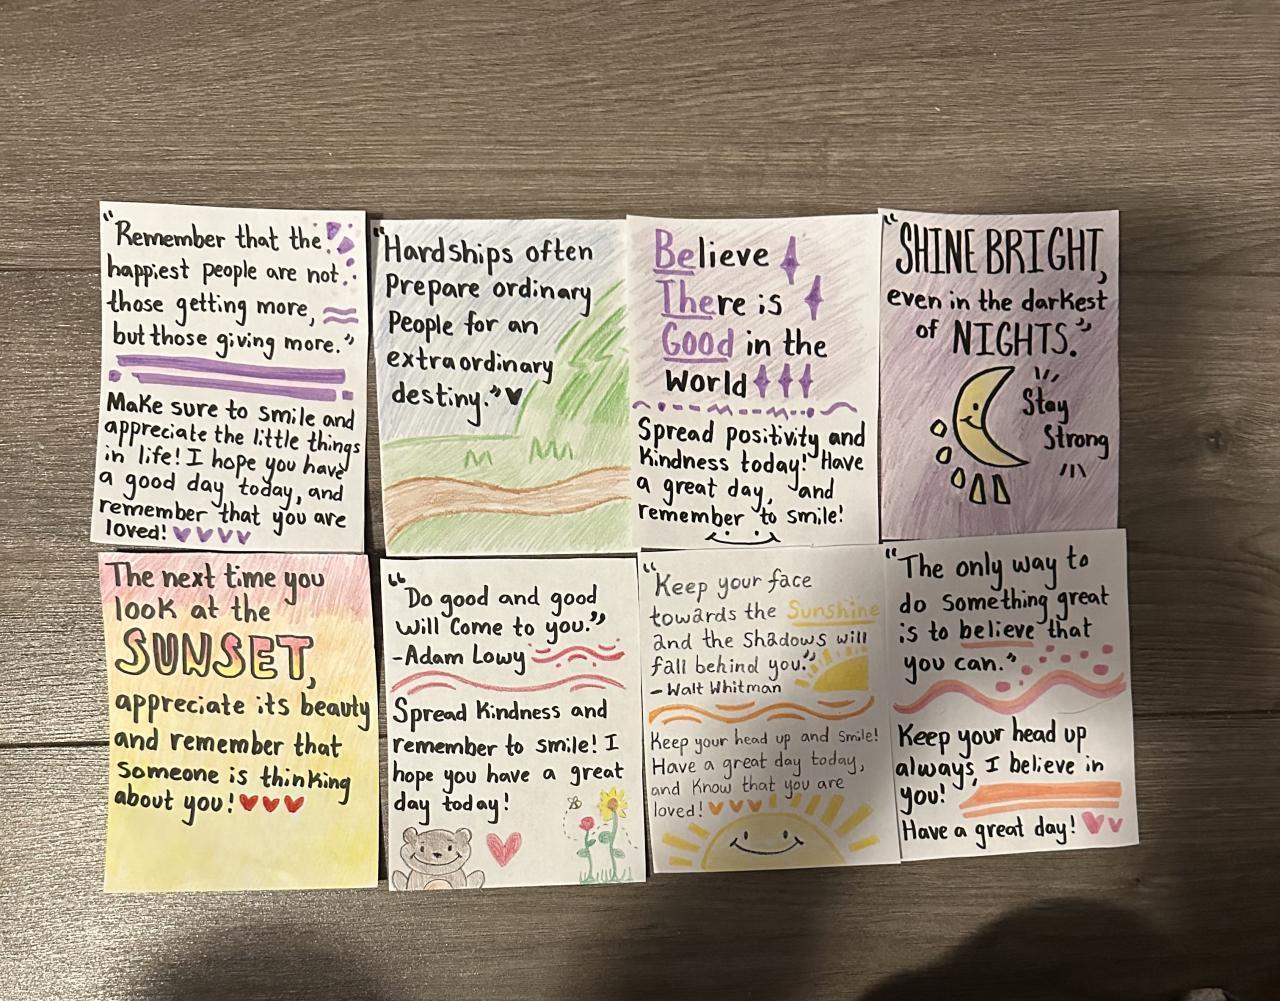 "Remember that the
happiest people are not
those getting more,
but those giving more."
Make sure to smile and
appreciate the little things
in life! I hope you have
a good day today, and
remember that you are
loved!
"Hardships often
Prepare ordinary
People for an
extraordinary
destiny."
Believe
There is
Good in the
World
Spread positivity and
Kindness today! Have
a great day, and
remember to smile!
"SHINE BRIGHT,
even in the darkest
of NIGHTS."
Stay
Strong
The next time you
look at the
SUNSET,
appreciate its beauty
and remember that
Someone is thinking
about you!
"Do good and good
Will Come to you."
-Adam Lowy
Spread Kindness and
remember to smile! I
hope you have a great
day today!
"Keep your face
towards the Sunshine
and the Shadows will
fall behind you."
- Walt Whitman
Keep your head up and smile!
Have a great day today,
and Know that you are
loved!
"The only way to
do Something great
is to believe that
you can."
Keep your head up
always, I believe in
you!
Have a great day!